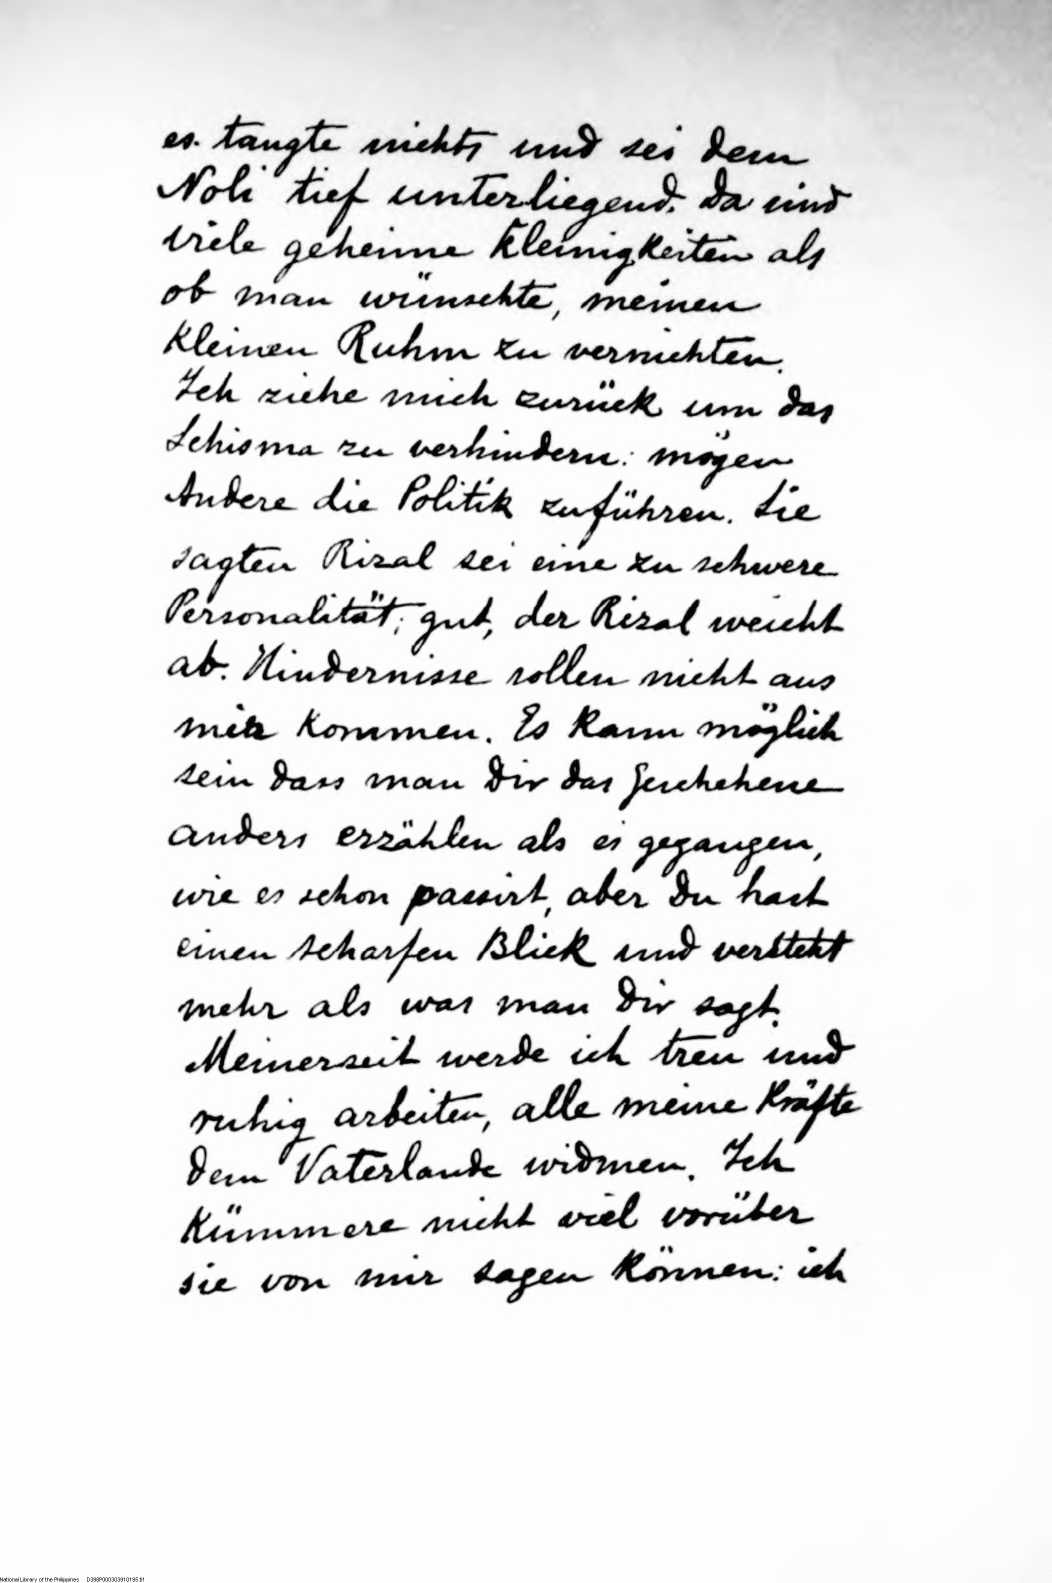 es taugte nichts und sei dem
Noli tief unterliegend. Da sind
viele geheime Kleinigkeiten als
ob man wünschte, meinen
kleinen Ruhm zu vernichten.
Ich ziehe mich zurück um das
Schisma zu verhindern: mögen
Andere die Politik zuführen. Sie
sagten Rizal sei eine zu schwere
Personalität; gut, der Rizal weicht
ab. Hindernisse sollen nicht aus
mir kommen. Es kann möglich
sein dass man Dir das Geschehene
anders erzählen als es gegangen,
wie es schon passirt, aber Du hast
einen scharfen Blick und verstehst
mehr als was man Dir sagt.
Meinerseit werde ich treu und
ruhig arbeiten, alle meine Kräfte
dem Vaterlande widmen. Ich
kümmere nicht viel vorüber
sie von mir sagen können: ich
National Library of the Philippines